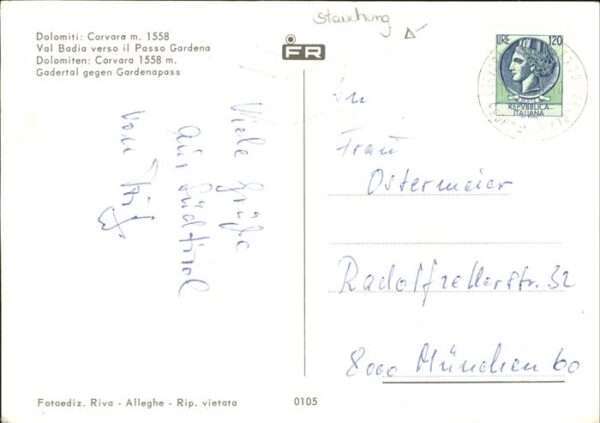 Dolomiti: Corvara m. 1558
Val Badia verso il Passo Gardena
Dolomiten: Corvara 1558 m.
Gadertal gegen Gardenapass
Stauchung
FR
LIRE 120
REPVBBLICA
ITALIANA
Viele Grüße
aus Südtirol
von
An
Frau
Ostermeier
Radolfzellerstr. 32
8000 München 60
Fotoediz. Riva - Alleghe - Rip. vietata
0105